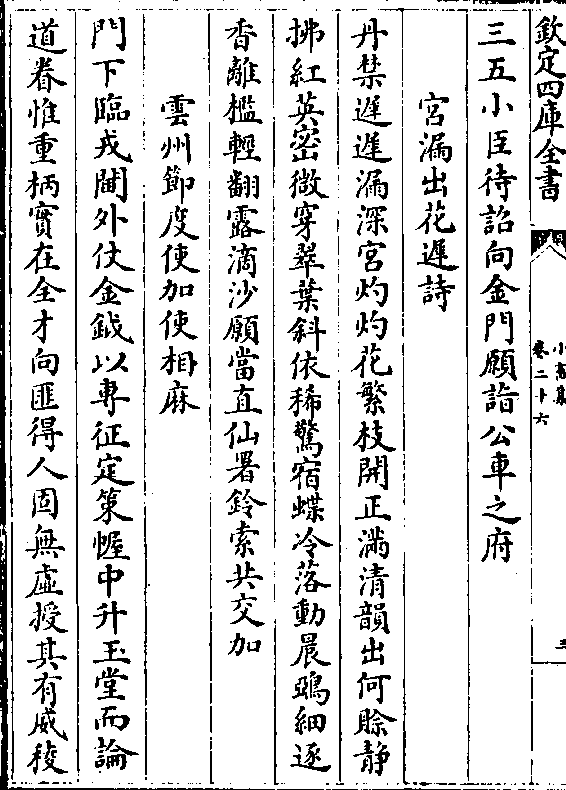 欽定四庫全書
小畜集
卷二十六
三
三五小臣待詔向金門願詣公車之府
宮漏出花遲詩
丹禁遲遲漏深宮灼灼花繁枝開正滿清韻出何賒静
拂紅英密微穿翠葉斜依稀驚宿蝶冷落動晨鵶細逐
香離檻輕翻露滴沙願當直仙署鈴索共交加
雲州節度使加使相麻
門下臨戎閫外仗金鉞以専征定䇿幄中升玉堂而論
道眷惟重柄實在全才向匪得人固無虛授其有威稜